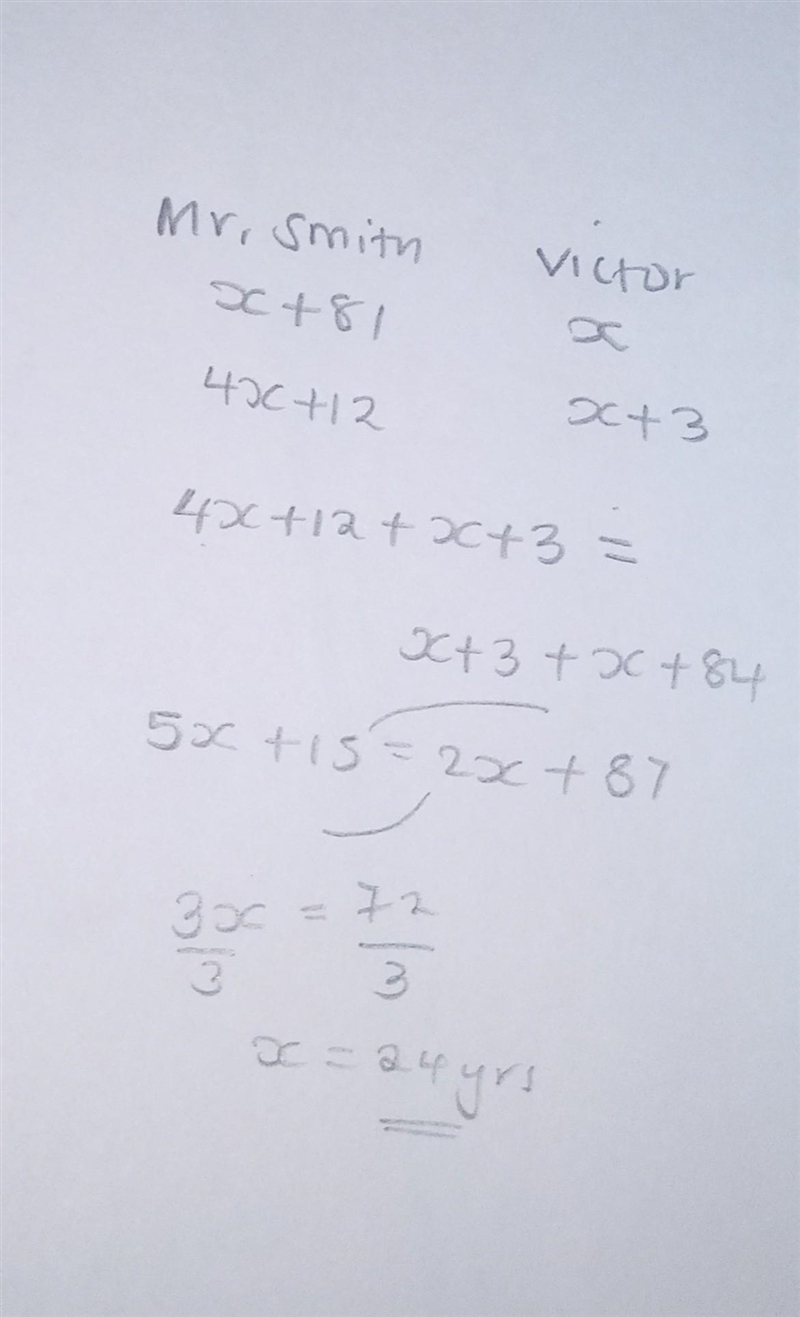 Mr. Smith Victor
x+81 x
4x+12 x+3
4x+12+x+3 =
x+3+x+84
5x+15=2x+87
3x/3 = 72/3
x = 24yrs